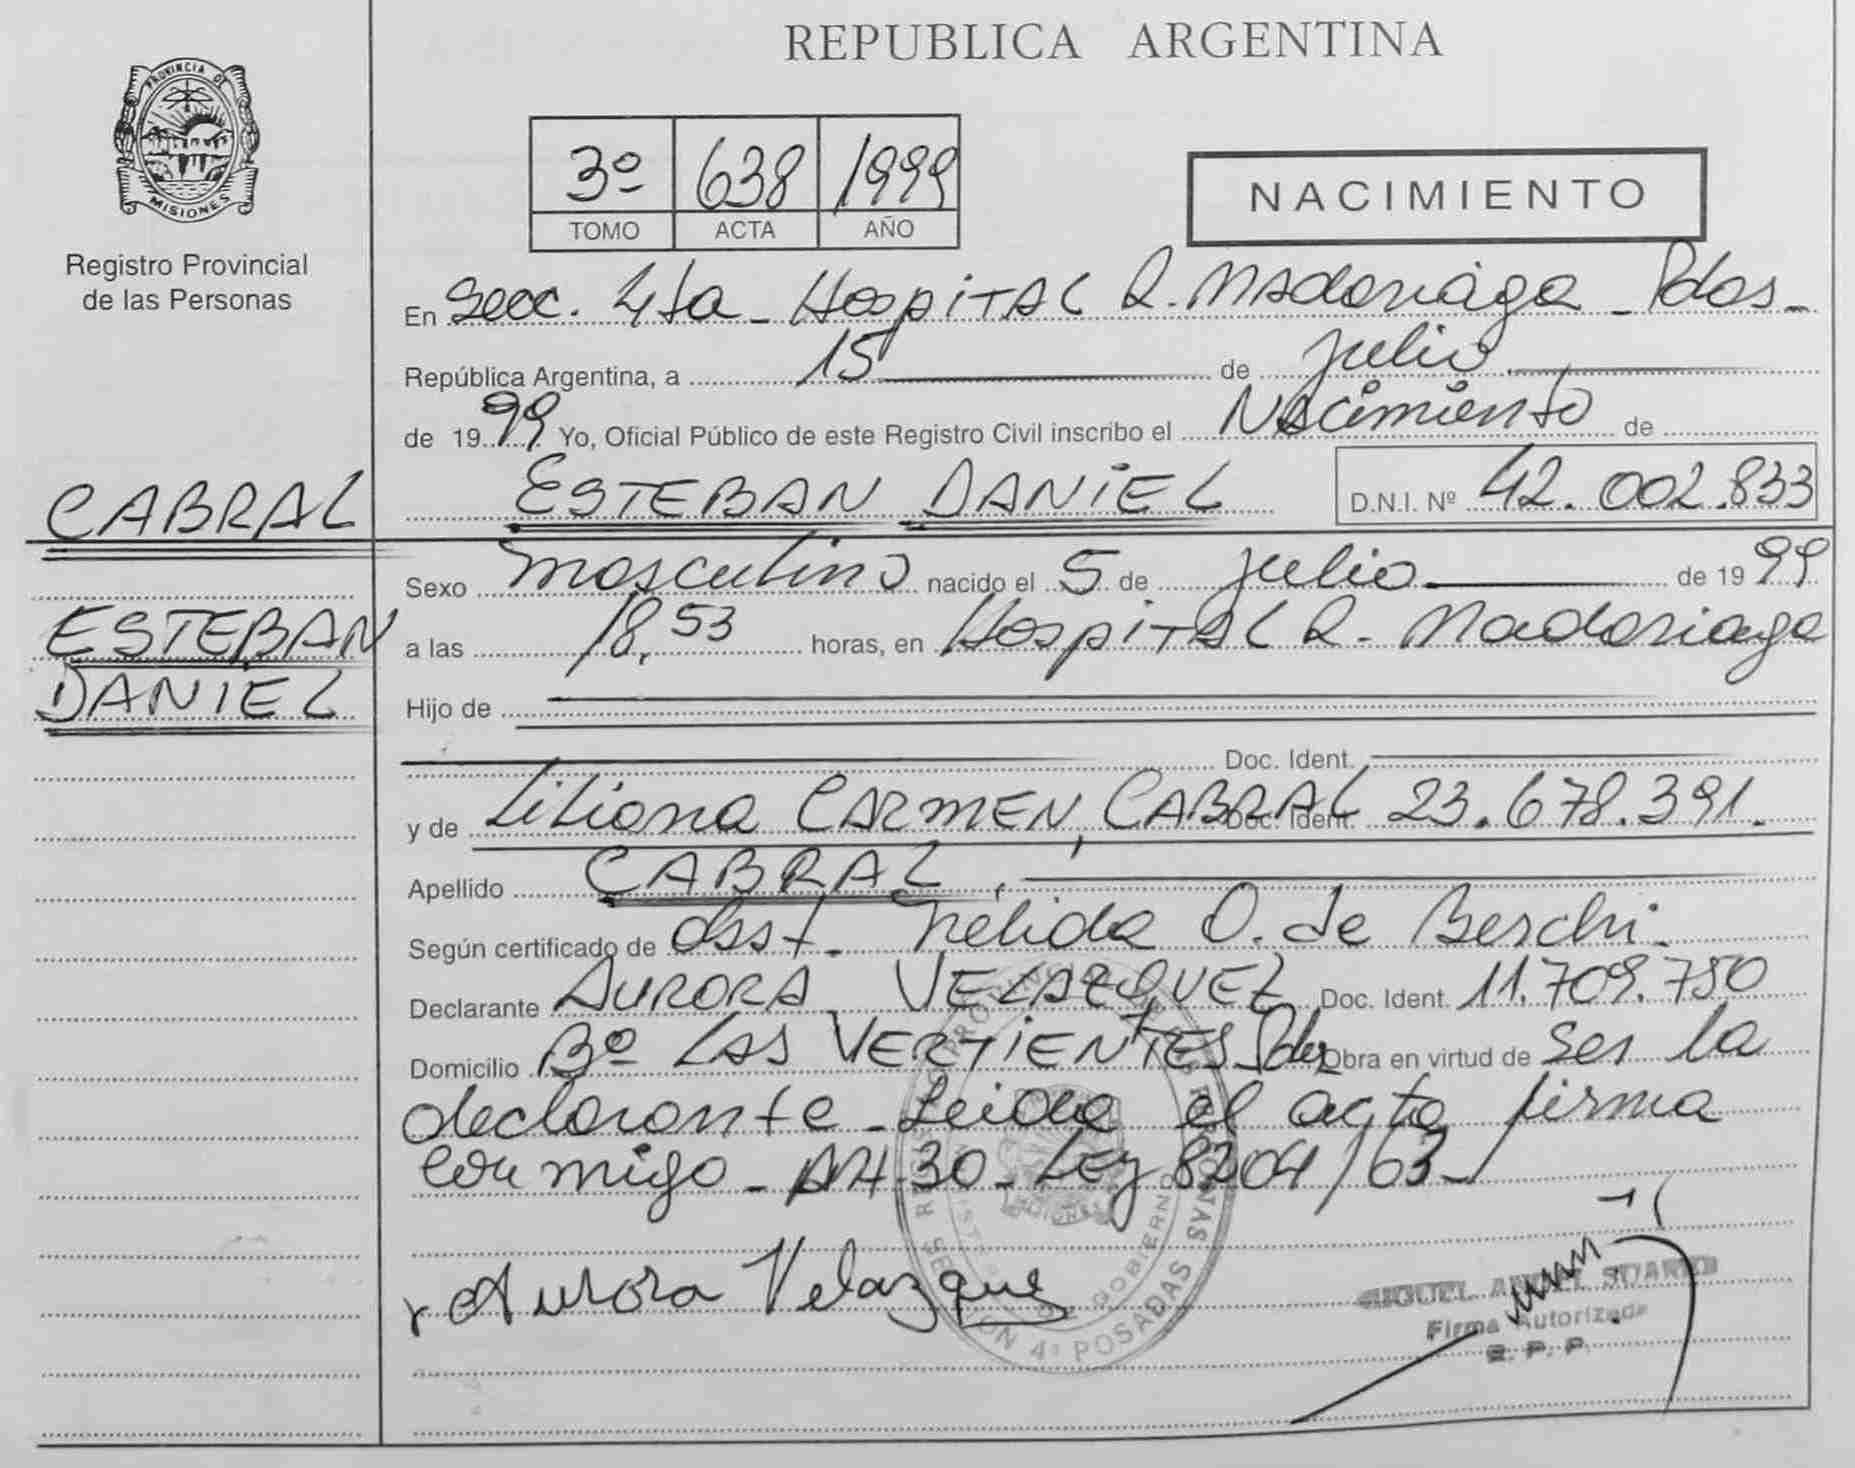 REPUBLICA ARGENTINA
PROVINCIA DE
MISIONES
Registro Provincial
de las Personas
3º 638 1999
TOMO ACTA AÑO
NACIMIENTO
En Secc. 4ta - Hospital R. Madariaga - Pdas -
República Argentina, a 15 de julio
de 1999 Yo, Oficial Público de este Registro Civil inscribo el Nacimiento de
CABRAL
ESTEBAN DANIEL D.N.I. Nº 42.002.833
Sexo masculino nacido el 5 de julio de 1999
ESTEBAN
DANIEL
a las 18,53 horas, en Hospital R. Madariaga
Hijo de
Doc. Ident.
y de Liliana CARMEN, CABRAL Doc. Ident. 23.678.391.
Apellido CABRAL,
Según certificado de Obst. Nélida O. de Berchi.
Declarante AURORA VELAZQUEZ Doc. Ident. 11.709.750
Domicilio Bº LAS VERTIENTES Pdas Obra en virtud de ser la
declarante - Leida el acta firma
conmigo - Art. 30 - Ley 8204/63 -
Aurora Velazque
SECCION 4ª POSADAS
MIGUEL ANGEL SUAREZ
Firma Autorizada
R. P. P.